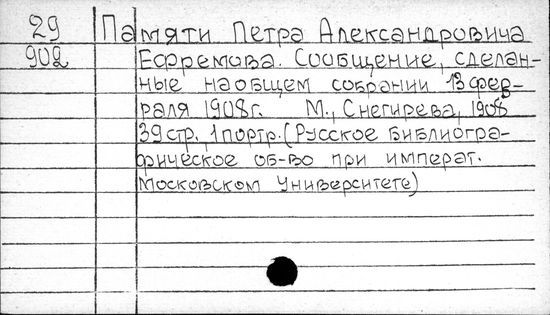 29 Памяти Петра Александровича
902 Ефремова. Сообщение, сделан-
ные на общем собрании 13 фев-
раля 1908г. М., Снегирева, 1908
39 стр., 1 портр. (Русское Библиогра-
фическое об-во при императ.
Московском Университете)